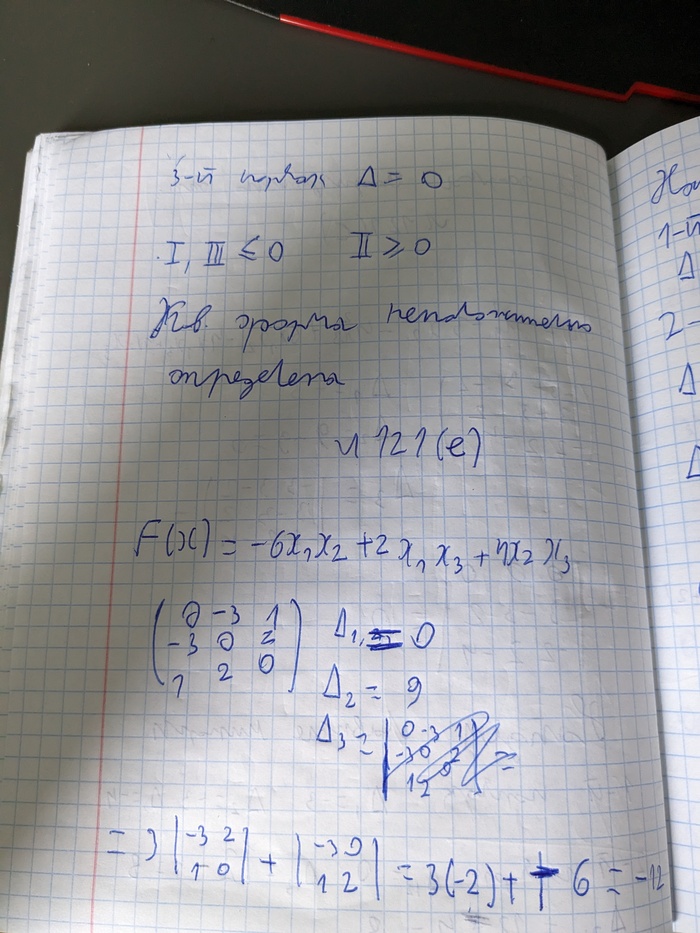 3-й порядок Δ = 0
I, III ⩽ 0 II ⩾ 0
Кв. форма неположительно
определена
№ 121 (е)
F(x) = -6x₁x₂ + 2x₁x₃ + 4x₂x₃
( 0 -3 1 ) Δ₁ = 0
( -3 0 2 )
( 1 2 0 ) Δ₂ = 9
Δ₃ = | 0 -3 1 |
| -3 0 2 | =
| 1 2 0 |
= 3 | -3 2 | + | -3 0 | = 3(-2) + - 6 = -12
| 1 0 | | 1 2 |
Но
1-й
Δ
2-
Δ
Δ